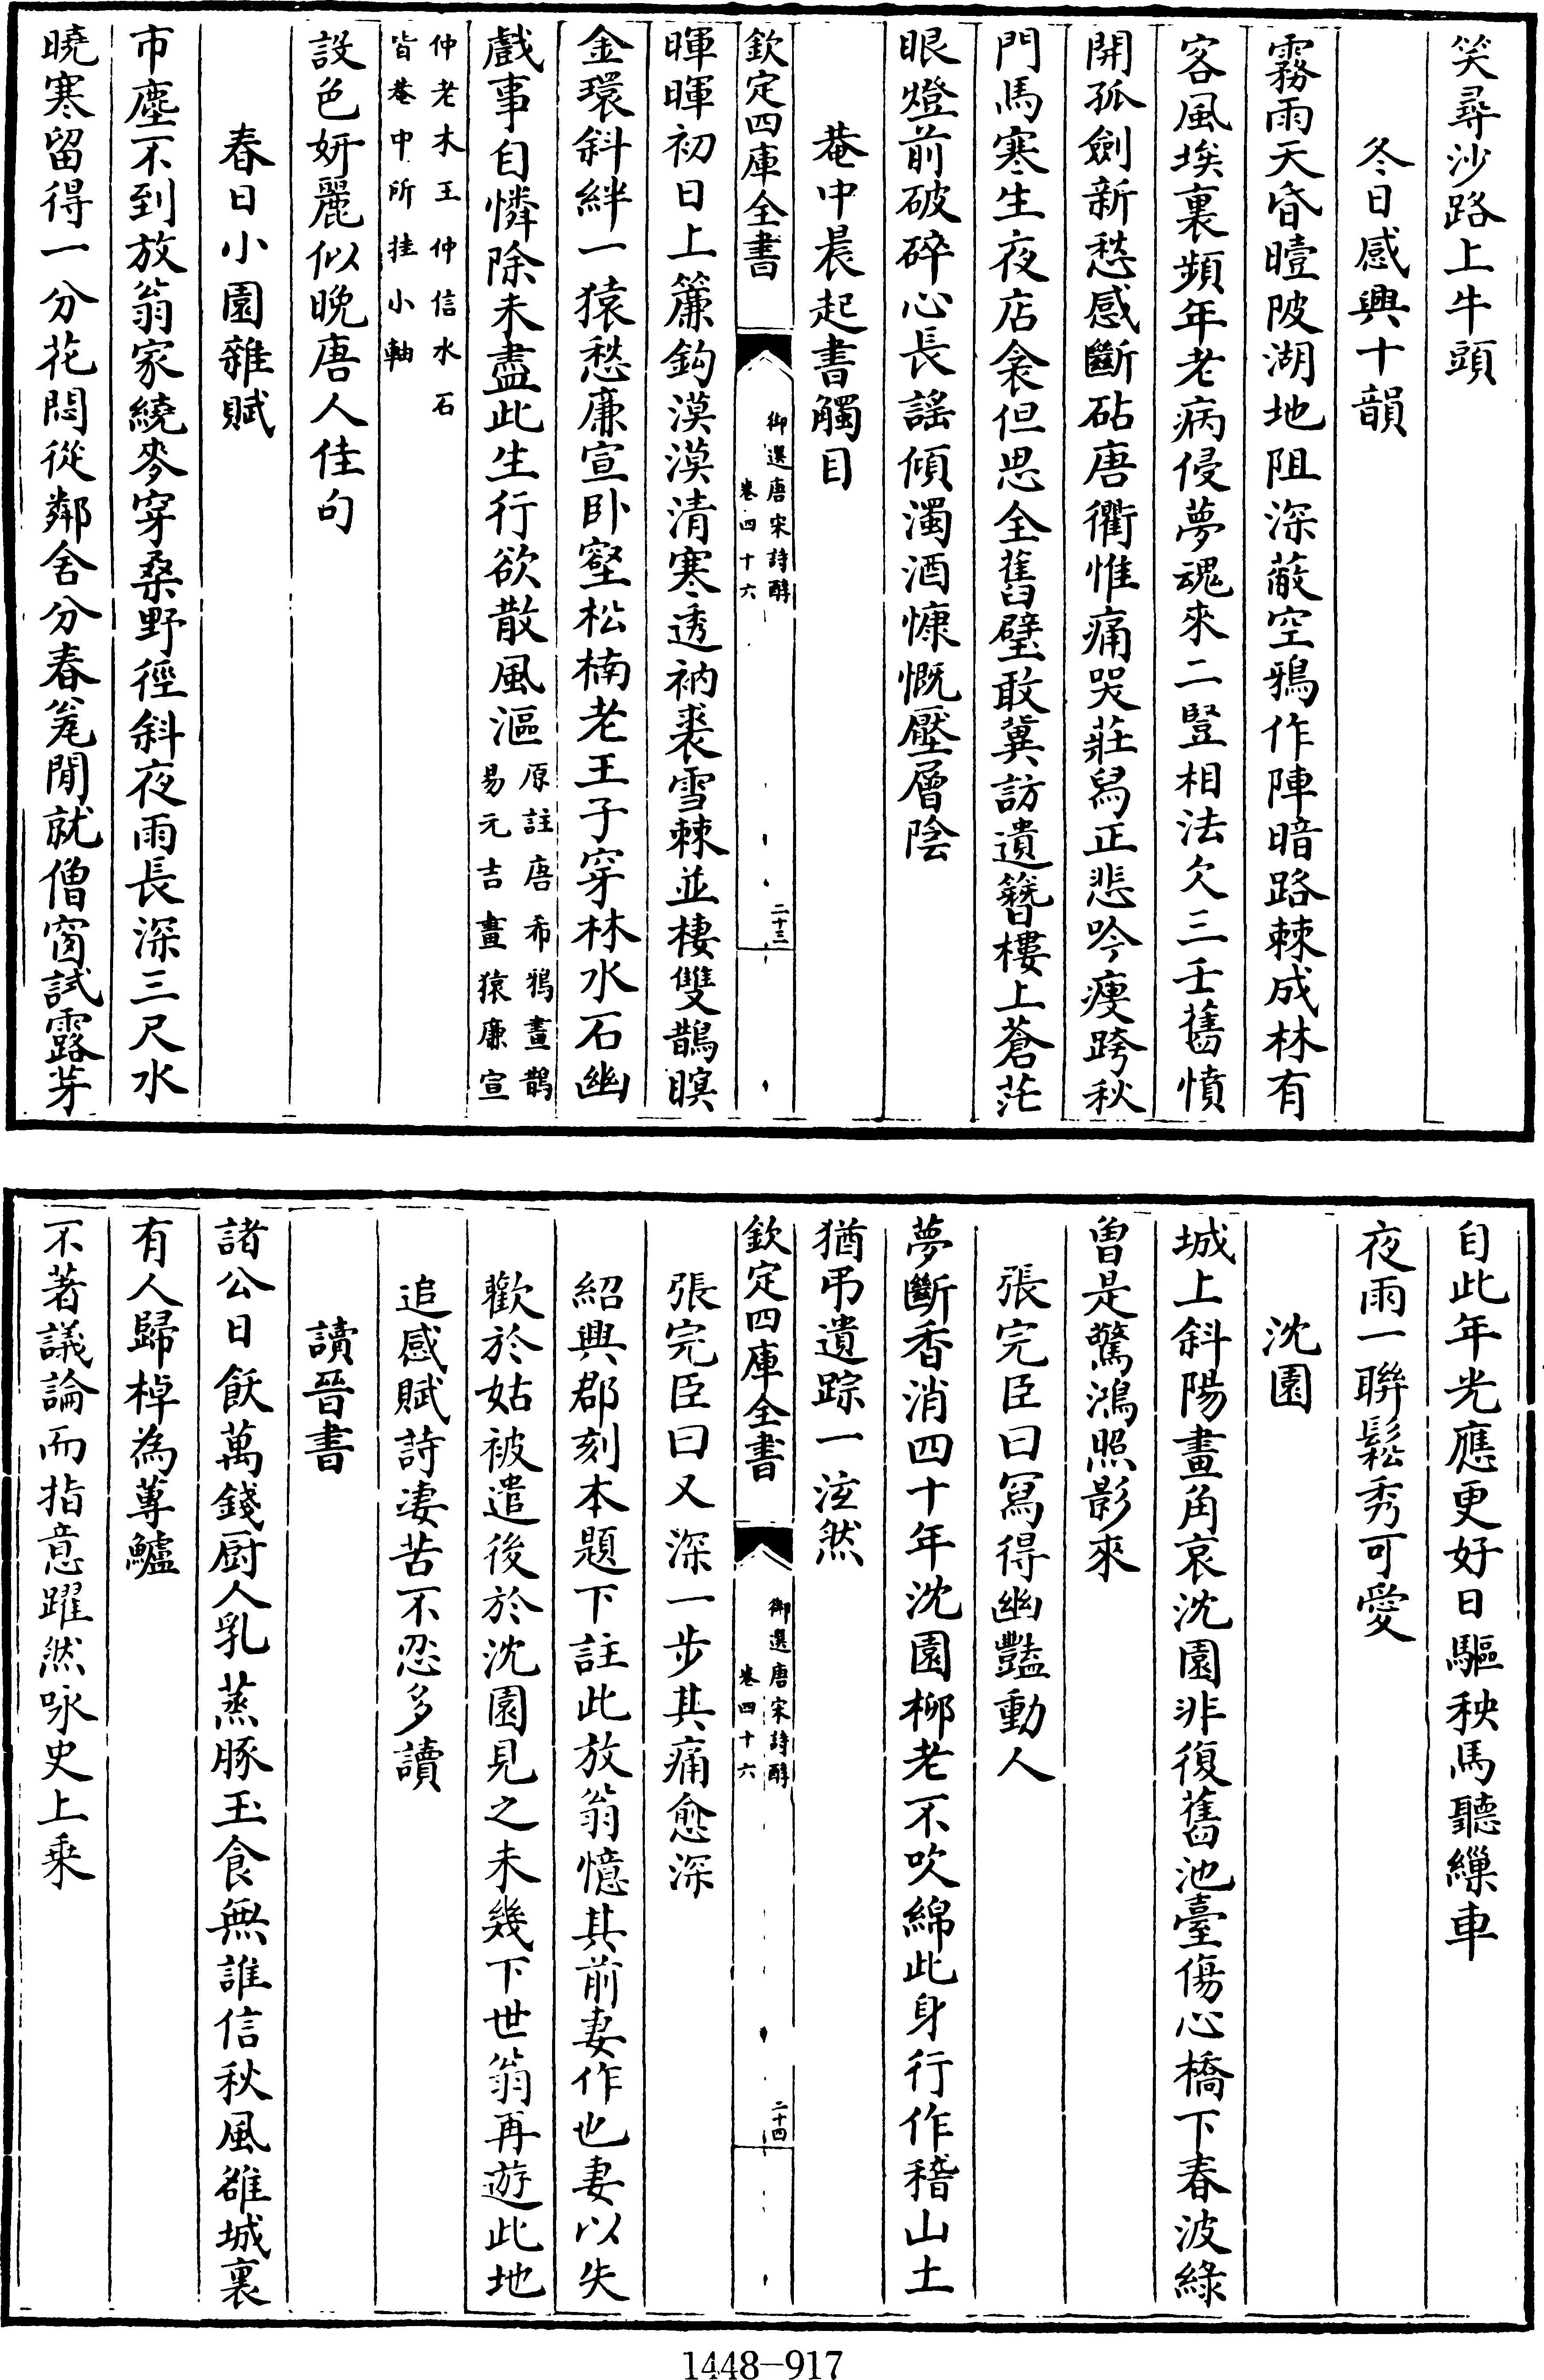 笑尋沙路上牛頭
冬日感興十韻
霧雨天昏曀陂湖地阻深蔽空鴉作陣暗路棘成林有
客風埃裏頻年老病侵夢魂來二豎相法欠三壬舊憤
開孤劍新愁感斷砧唐衢惟痛哭莊舄正悲吟瘦跨秋
門馬寒生夜店衾但思全舊璧敢冀訪遺簪樓上蒼茫
眼燈前破碎心長謠傾濁酒慷慨壓層陰
菴中晨起書觸目
欽定四庫全書
御選唐宋詩醇
卷四十六
二十三
暉暉初日上簾鈎漠漠清寒透衲裘雪棘並棲雙鵲瞑
金環斜絆一猿愁廉宣卧壑松楠老王子穿林水石幽
戲事自憐除未盡此生行欲散風漚
原註唐希鴉畫鵲
易元吉畫猿廉宣
仲老木王仲信水石
皆菴中所挂小軸
設色妍麗似晚唐人佳句
春日小園雜賦
市塵不到放翁家繞麥穿桑野徑斜夜雨長深三尺水
曉寒留得一分花悶從鄰舍分春瓮閒就僧窗試露芽
自此年光應更好日驅秧馬聽繅車
夜雨一聯鬆秀可愛
沈園
城上斜陽畫角哀沈園非復舊池臺傷心橋下春波綠
曾是驚鴻照影來
張完臣曰寫得幽豔動人
夢斷香消四十年沈園柳老不吹綿此身行作稽山土
猶弔遺踪一泫然
欽定四庫全書
御選唐宋詩醇
卷四十六
二十四
張完臣曰又深一步其痛愈深
紹興郡刻本題下註此放翁憶其前妻作也妻以失
歡於姑被遣後於沈園見之未幾下世翁再遊此地
追感賦詩凄苦不忍多讀
讀晉書
諸公日飫萬錢厨人乳蒸豚玉食無誰信秋風雒城裏
有人歸棹為蓴鱸
不著議論而指意躍然咏史上乘
1448-917